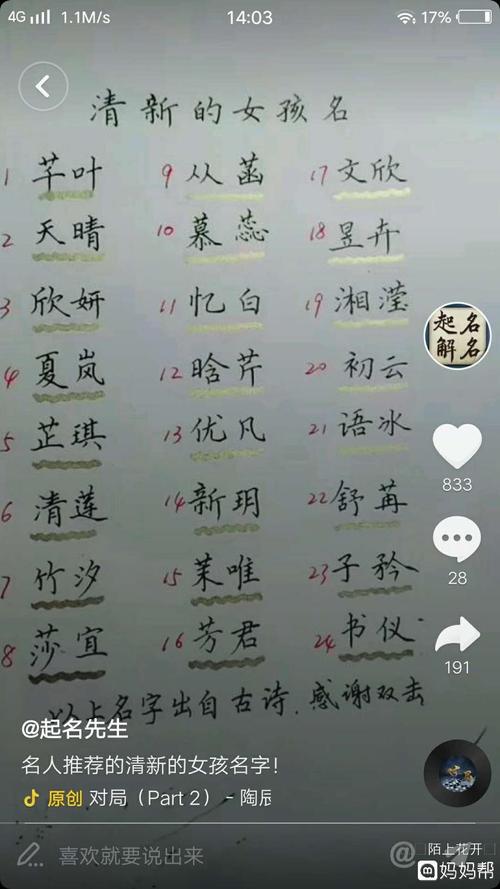 4G 1.1M/s 14:03 17%
清新的女孩名
1 芊叶 9 从菡 17 文欣
2 天晴 10 慕蕊 18 昱卉
3 欣妍 11 忆白 19 湘滢
4 夏岚 12 晗芹 20 初云
5 芷琪 13 优凡 21 语冰
6 清莲 14 新玥 22 舒苒
7 竹汐 15 茉唯 23 子矜
8 莎宜 16 芳君 24 书仪
起名
解名
833
28
191
以上名字出自古诗.感谢双击
@起名先生
名人推荐的清新的女孩名字!
原创 对局（Part 2） - 陶辰
喜欢就要说出来
@
陌上花开
妈妈帮